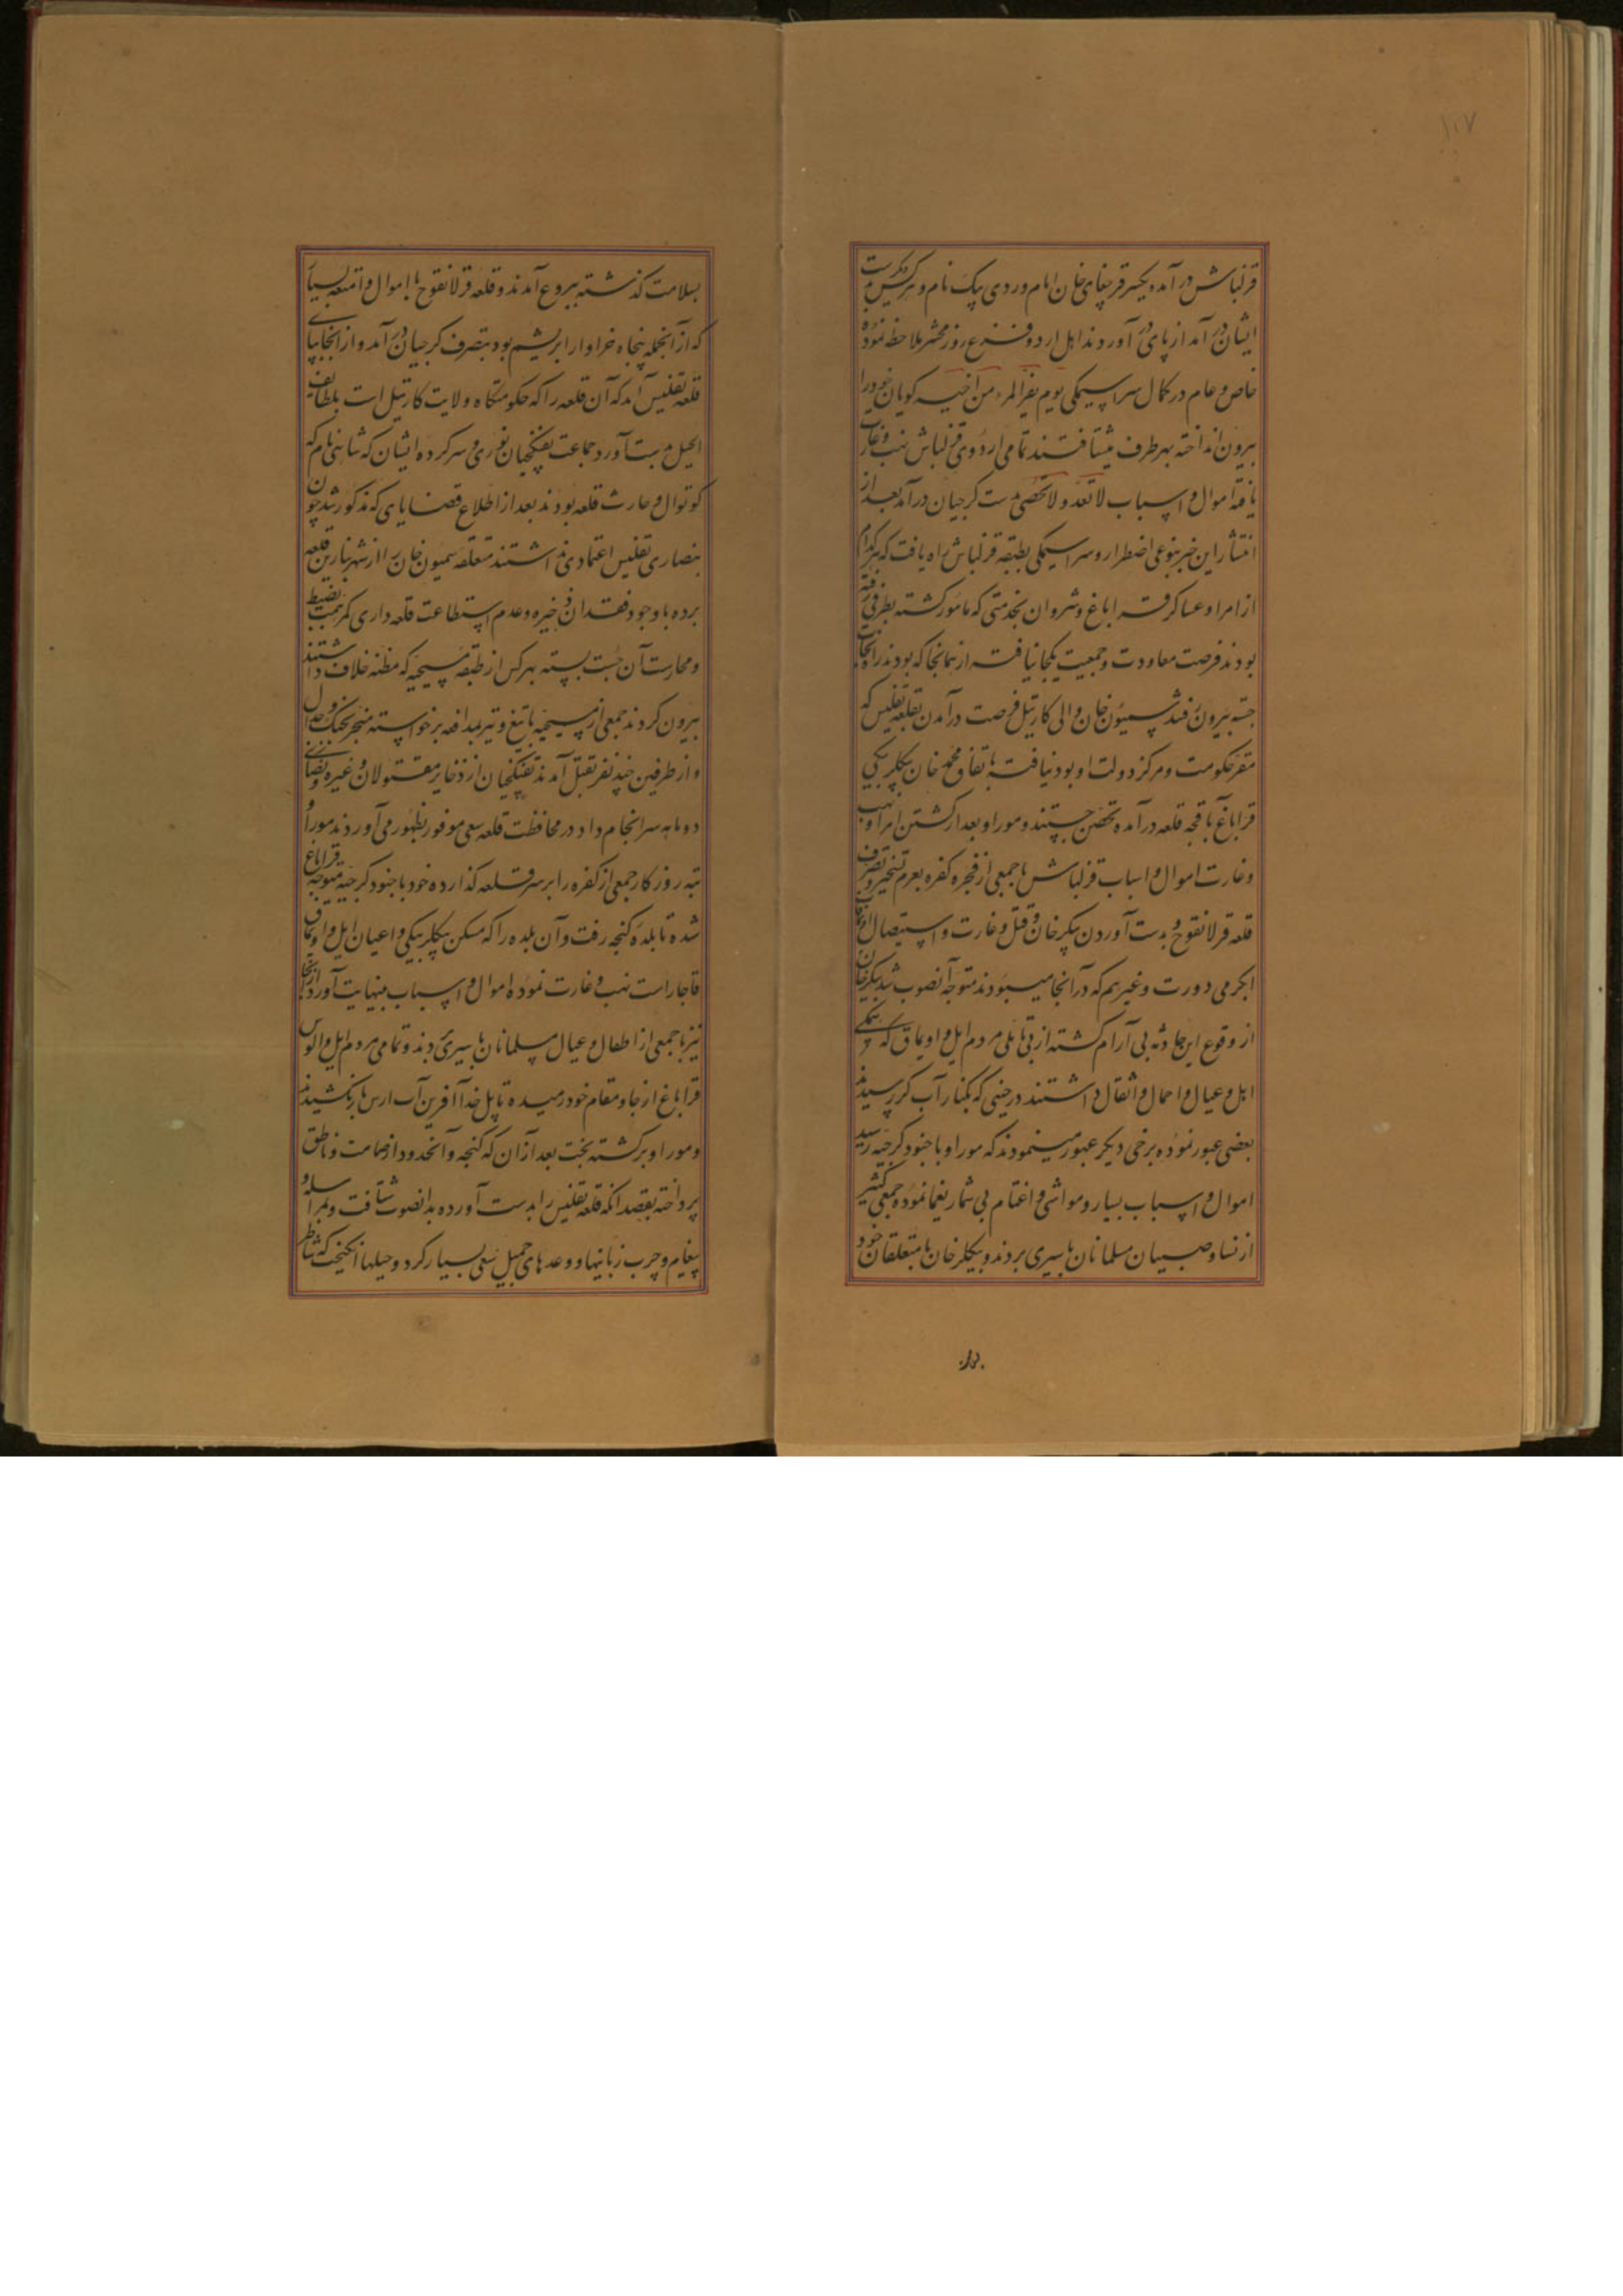 ۱۰۷
قزلباش در آمده یکپسر قرچغای خان امام وردی بیک نام و هرکس بدست
ایشان در آمد از پای در آوردند اهل اردو فزع روز محشر ملاحظه نموده
خاص و عام در کمال سراسیمکی یوم یفر المرء من اخیه کویان خود را
بیرون انداخته بهر طرف میشتافتند تمامی اردوی قزلباش نهب و غارت
یافته اموال و اسباب لاتعد و لاتحصی بدست کرجیان در آمد بعد از
انتشار این خبر بنوعی اضطرار و سراسیمکی بطبقه قزلباش راه یافت که هر کدام
از امرا و عساکر قراباغ و شروان بخدمتی که مامور کشته بطرفی رفته
بودند فرصت معاودت و جمعیت یکجا نیافته از همانجا که بودند راه نجات
جسته بیرون رفتند سمیون خان والی کارتیل فرصت در آمدن بقلعه تفلیس که
مقر حکومت و مرکز دولت او بود نیافته باتفاق محمد خان بیکلربیکی
قراباغ باقجه قلعه در آمده تحصن جستند و موراو بعد از کشتن امرا و نهب
و غارت اموال و اسباب قزلباش با جمعی از فجره کفره بعزم تسخیر و تصرف
قلعه قرلانقوح و بدست آوردن بیکرخان و قتل و غارت و استیصال اویماقات
ایکرمی دورت و غیرهم که در آنجا میبودند متوجه آنصوب شد بیکرخان
از وقوع این حادثه بی آرام کشته از بی تاملی مردم ایل و اویماق که همکی
اهل و عیال و احمال و اثقال داشتند در حینی که بکنار آب کر رسیدند
بعضی عبور نموده برخی دیکر عبور مینمودند که موراو با جنود کرجیه رسید
اموال و اسباب بسیار و مواشی و اغنام بی شمار یغما نموده جمعی کثیر
از نسا و صبیان مسلمانان باسیری بردند و بیکلرخان با متعلقان خود
بسلامت کذشته ببردع آمدند و قلعه قرلانقوح با اموال و امتعه بسیار
که از آنجمله پنجاه خراوار ابریشم بود بتصرف کرجیان در آمد و از آنجا بپای
قلعه تفلیس آمد که آن قلعه را که حکومتکاه ولایت کارتیل است بلطایف
الحیل بدست آورد جماعت تفنکچیان نوری و سرکرده ایشان که شاطر نام که
کوتوال و حارث قلعه بودند بعد از اطلاع قضایای که مذکور شد چون
بنصاری تفلیس اعتمادی نداشتند متعلقه سمیون خان را از شهر بنارین قلعه
برده با وجود فقدان ذخیره و عدم استطاعت قلعه داری کمر همت بضبط
و محارست آن چست بسته بهر کس از طبقه مسیحیه که مظنه خلاف داشتند
بیرون کردند جمعی از مسیحیه با تیغ و تیر بمدافعه برخواسته منجر بجنک و جدل
و از طرفین چند نفر بقتل آمدند تفنکچیان از ذخایر مقتولان و غیره و نصارای
دو ماهه سرانجام داد در محافظت قلعه سعی موفور بظهور می آوردند موراو
تبه روزکار جمعی از کفره را بر سر قلعه کذارده خود با جنود کرجیه متوجه قراباغ
شده تا بلده کنجه رفت و آن بلده را که مسکن بیکلربیکی و اعیان ایل و اویماق
قاجار است نهب و غارت نموده اموال و اسباب بینهایت آورد از آنجا
نیز با جمعی از اطفال و عیال مسلمانان باسیری بردند و تمامی مردم ایل و الوس
قراباغ از جا و مقام خود رمیده تا پل خدا آفرین آب ارس باز نکشیدند
و موراو برکشته بخت بعد از آن که کنجه و آنحدود از صامت و ناطق
پرداخته بقصد انکه قلعه تفلیس را بدست آورده بدانصوب شتافت و بمراسله و
پیغام و چرب زبانیها و وعدهای جمیل سعی بسیار کرد و حیلها انکیخت که شاطر